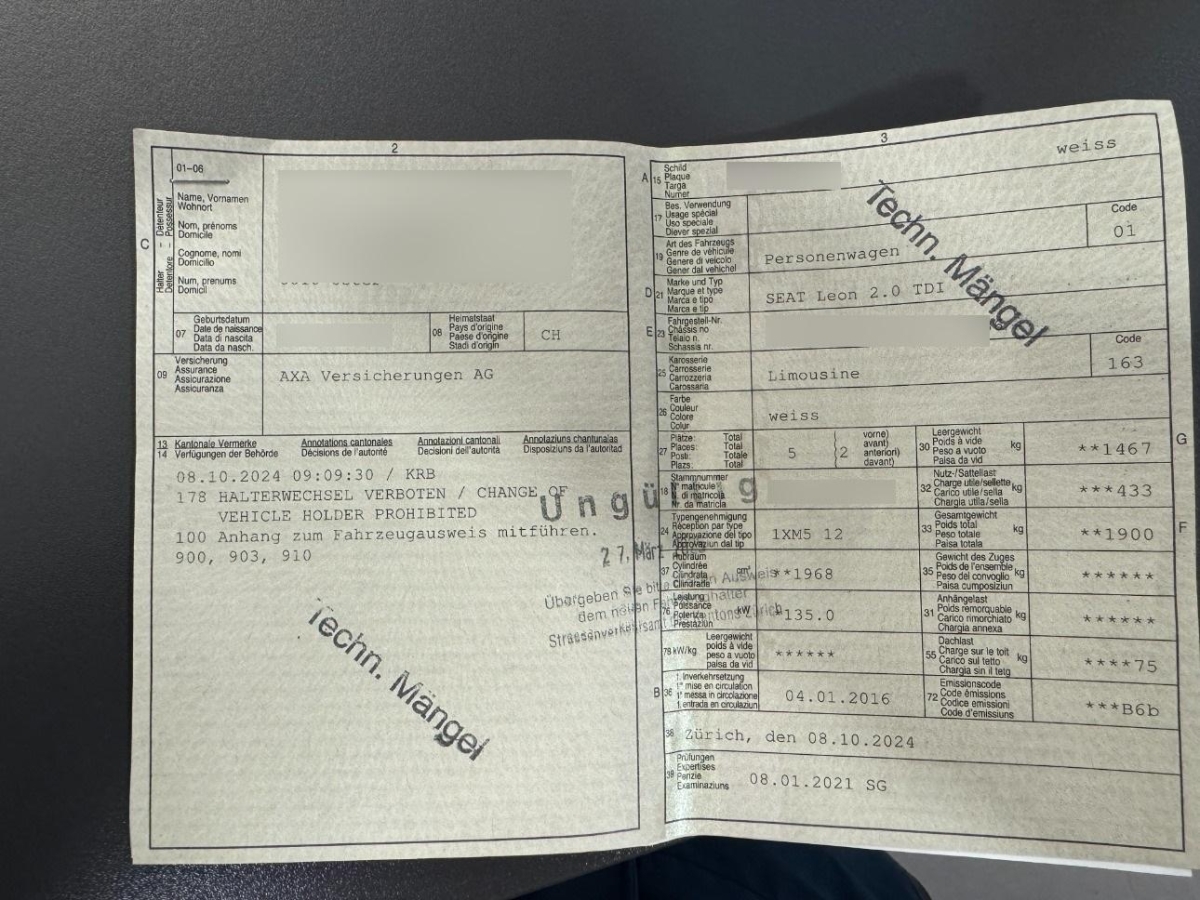 2
01-06
C
Halter – Detenteur
Detentore – Possessur
Name, Vornamen
Wohnort
Nom, prénoms
Domicile
Cognome, nomi
Domicilio
Num, prenums
Domicil
07
Geburtsdatum
Date de naissance
Data di nascita
Data da nasch.
08
Heimatstaat
Pays d'origine
Paese d'origine
Stadi d'origin
CH
09
Versicherung
Assurance
Assicurazione
Assicuranza
AXA Versicherungen AG
13
14
Kantonale Vermerke
Verfügungen der Behörde
Annotations cantonales
Décisions de l'autorité
Annotazioni cantonali
Decisioni dell'autorità
Annotaziuns chantunalas
Disposiziuns da l'autoritad
08.10.2024 09:09:30 / KRB
178 HALTERWECHSEL VERBOTEN / CHANGE OF
VEHICLE HOLDER PROHIBITED
100 Anhang zum Fahrzeugausweis mitführen.
900, 903, 910
27. März
Übergeben Sie Ausweis
dem neuen
Techn. Mängel
3
weiss
A
15
Schild
Plaque
Targa
Numer
17
Bes. Verwendung
Usage spécial
Uso speciale
Diever spezial
Code
01
19
Art des Fahrzeugs
Genre de véhicule
Genere di veicolo
Gener dal vehichel
Personenwagen
D
21
Marke und Typ
Marque et type
Marca e tipo
Marca e tip
SEAT Leon 2.0 TDI
Techn. Mängel
E
23
Fahrgestell-Nr.
Châssis no
Telaio n.
Schassis nr.
25
Karosserie
Carrosserie
Carrozzeria
Carossaria
Limousine
Code
163
26
Farbe
Couleur
Colore
Colur
weiss
27
Plätze: Total
Places: Total
Posti: Totale
Plazs: Total
5
2
vorne)
avant)
anteriori)
davant)
G
30
Leergewicht
Poids à vide
Peso a vuoto
Paisa da vid
kg
**1467
18
Stammnummer
N° matricule
N. di matricola
Nr. da matricla
32
Nutz-/Sattellast
Charge utile/sellette
Carico utile/sella
Chargia utila/sella
kg
***433
24
Typengenehmigung
Réception par type
Approvazione del tipo
Approvaziun dal tip
1XM5 12
33
Gesamtgewicht
Poids total
Peso totale
Paisa totala
kg
**1900
F
37
Hubraum
Cylindrée
Cilindrata
Cilindrada
cm³
**1968
35
Gewicht des Zuges
Poids de l'ensemble
Peso del convoglio
Paisa cumposiziun
kg
******
76
Leistung
Puissance
Potenza
Prestaziun
kW
*135.0
31
Anhängelast
Poids remorquable
Carico rimorchiato
Chargia annexa
kg
******
78 kW/kg
Leergewicht
poids à vide
peso a vuoto
paisa da vid
******
55
Dachlast
Charge sur le toit
Carico sul tetto
Chargia sin il tetg
kg
****75
B
36
1. Inverkehrsetzung
1re mise en circulation
1a messa in circolazione
1. entrada en circulaziun
04.01.2016
72
Emissionscode
Code émissions
Codice emissioni
Code d'emissiuns
***B6b
38
Zürich, den 08.10.2024
39
Prüfungen
Expertises
Perizie
Examinaziuns
08.01.2021 SG